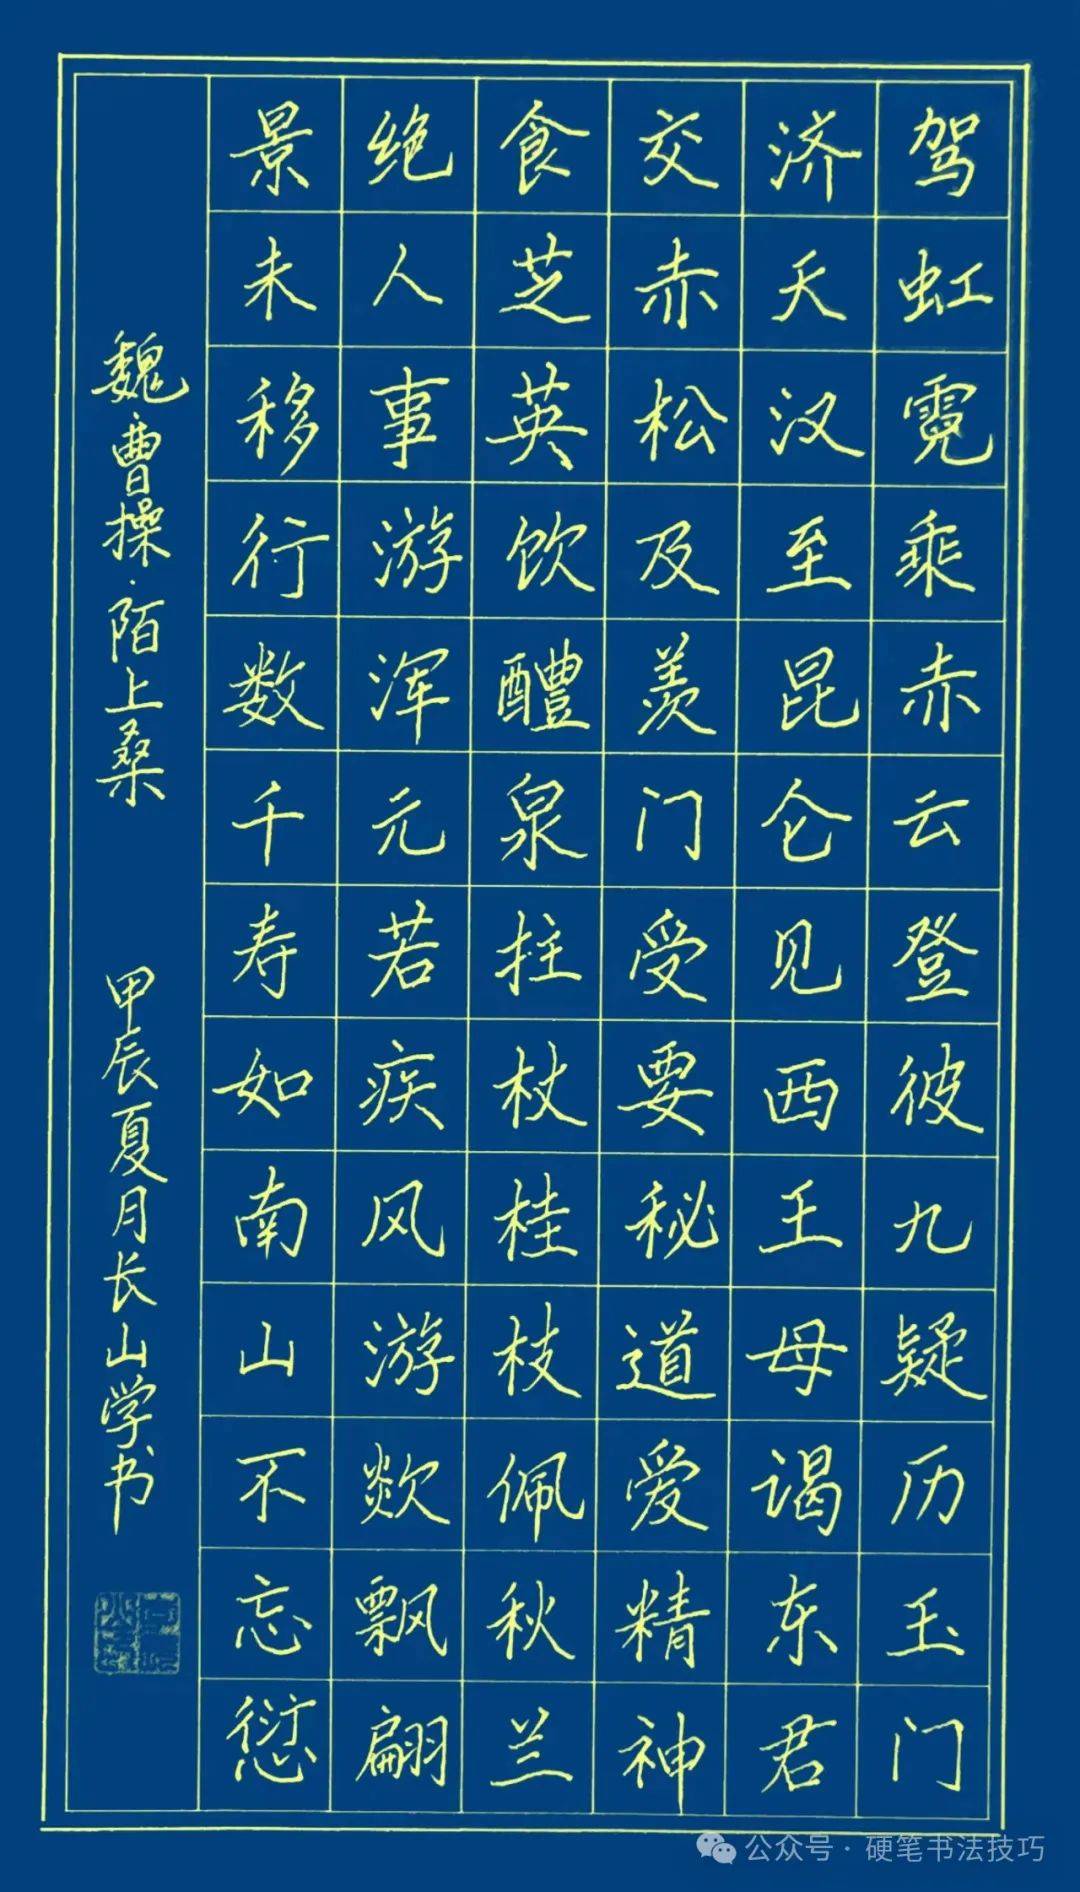 驾虹霓乘赤云登彼九疑历玉门
济天汉至昆仑见西王母谒东君
交赤松及羡门受要秘道爱精神
食芝英饮醴泉拄杖桂枝佩秋兰
绝人事游浑元若疾风游欻飘翩
景未移行数千寿如南山不忘愆
魏·曹操·陌上桑 甲辰夏月长山学书
公众号·硬笔书法技巧